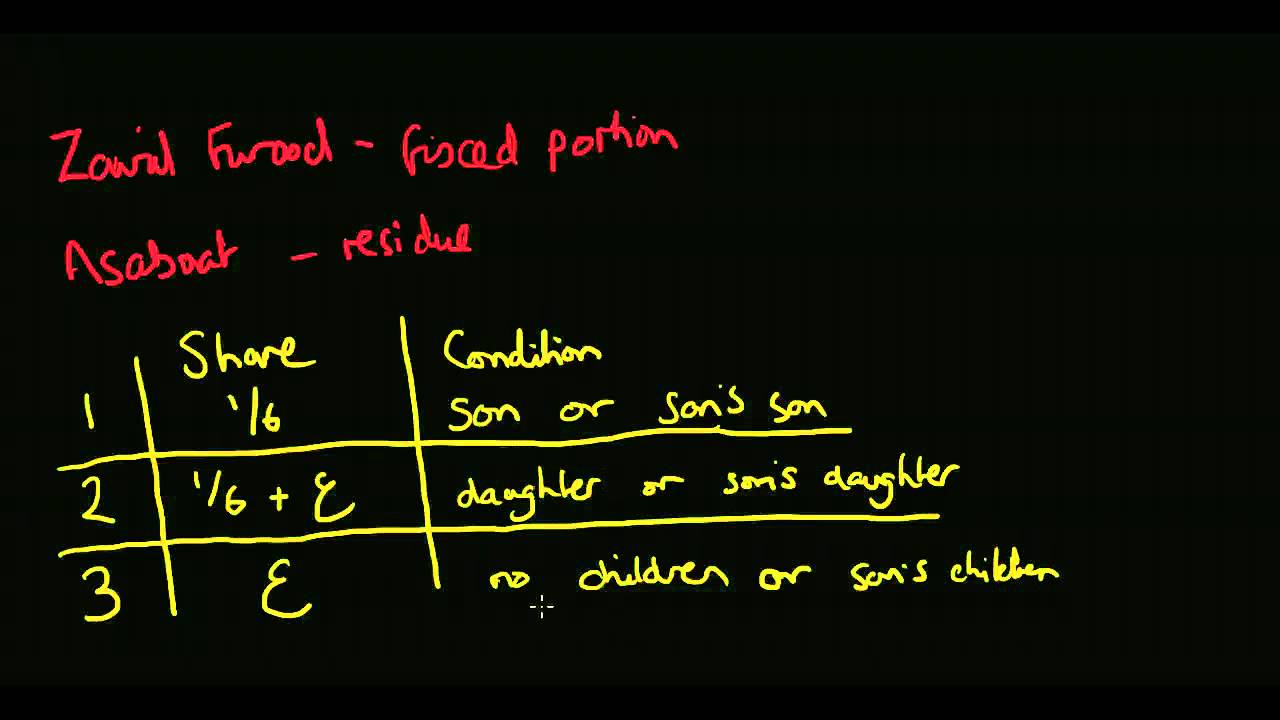 Zawil Furood - fixed portion
Asabaat - residue
Share Condition
1 1/6 son or son's son
2 1/6 + ع daughter or son's daughter
3 ع no children or son's children